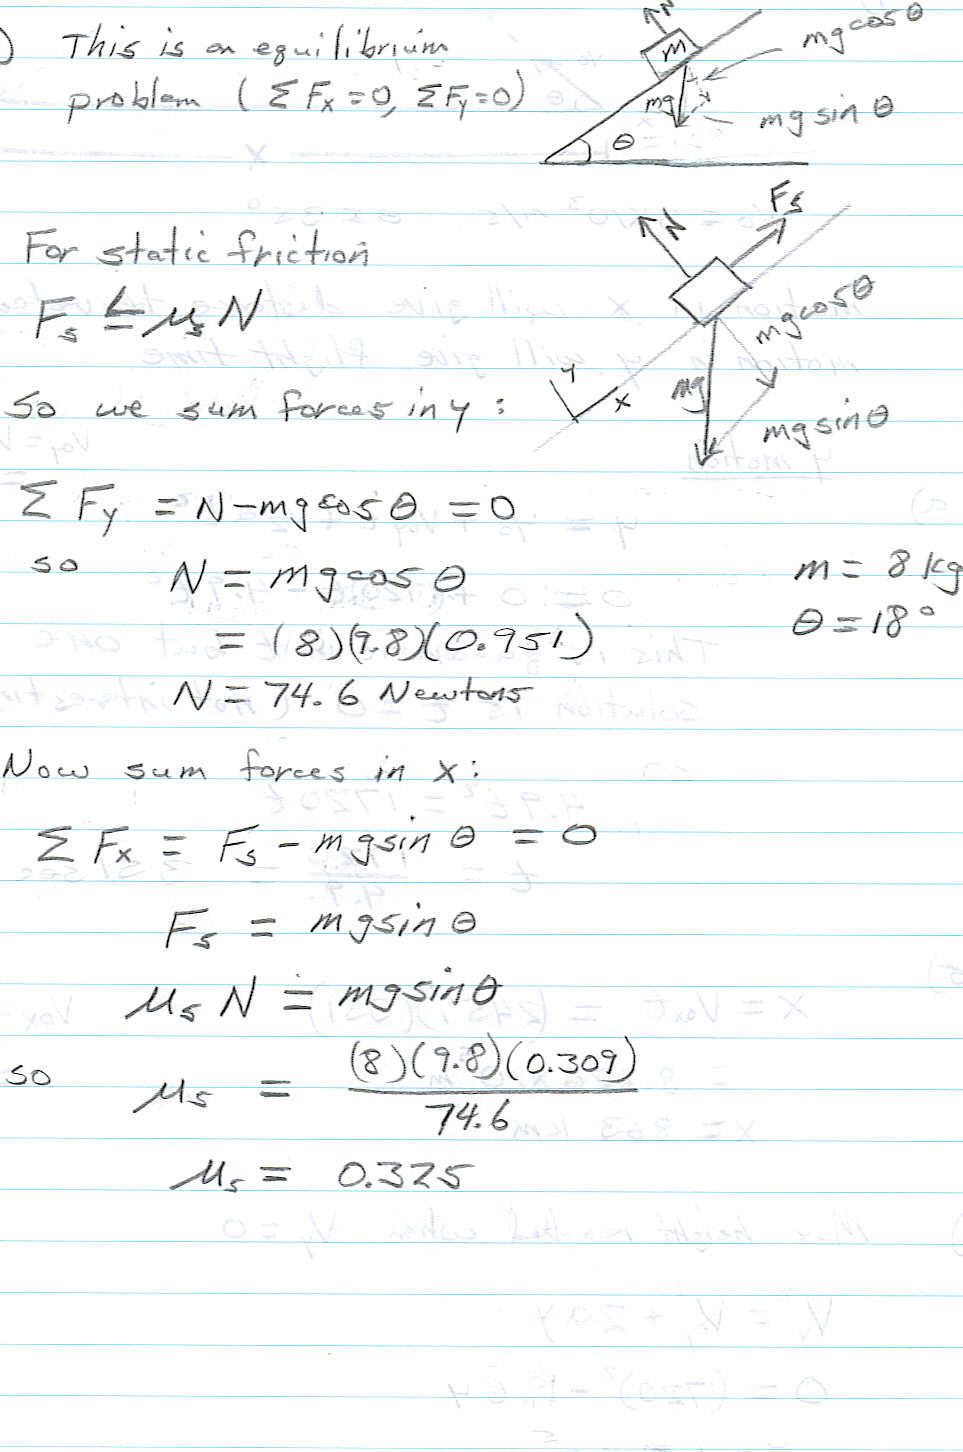 ) This is an equilibrium
problem (Σ Fx = 0, Σ Fy = 0)
N
m
mg cos θ
mg
mg sin θ
θ
For static friction
Fs ≤ μs N
N
Fs
mg cos θ
mg
mg sin θ
y
x
So we sum forces in y :
Σ Fy = N - mg cos θ = 0
so N = mg cos θ
m = 8 kg
θ = 18°
= (8)(9.8)(0.951)
N = 74.6 Newtons
Now sum forces in x :
Σ Fx = Fs - mg sin θ = 0
Fs = mg sin θ
μs N = mg sin θ
so μs = (8)(9.8)(0.309) / 74.6
μs = 0.325